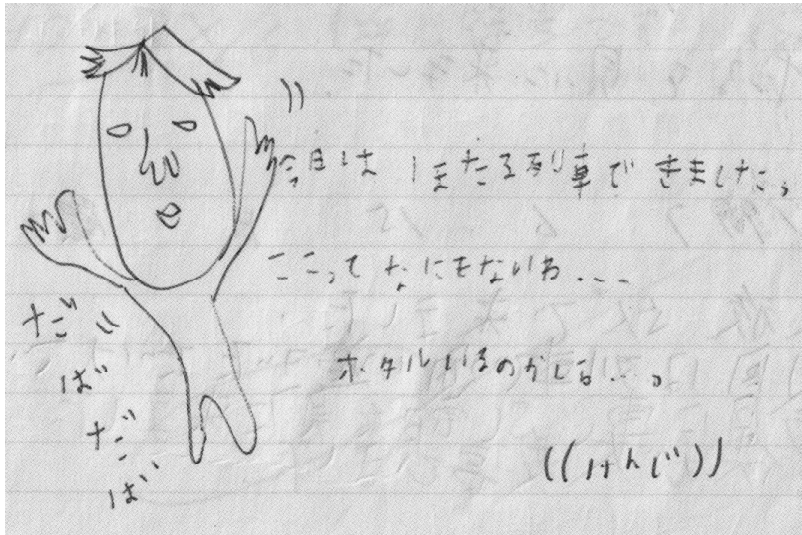 今日は ほたる列車で きました。
ここって なにもないわ...
ホタルいるのかしら...。
((けんじ))
だ
ば
だ
ば